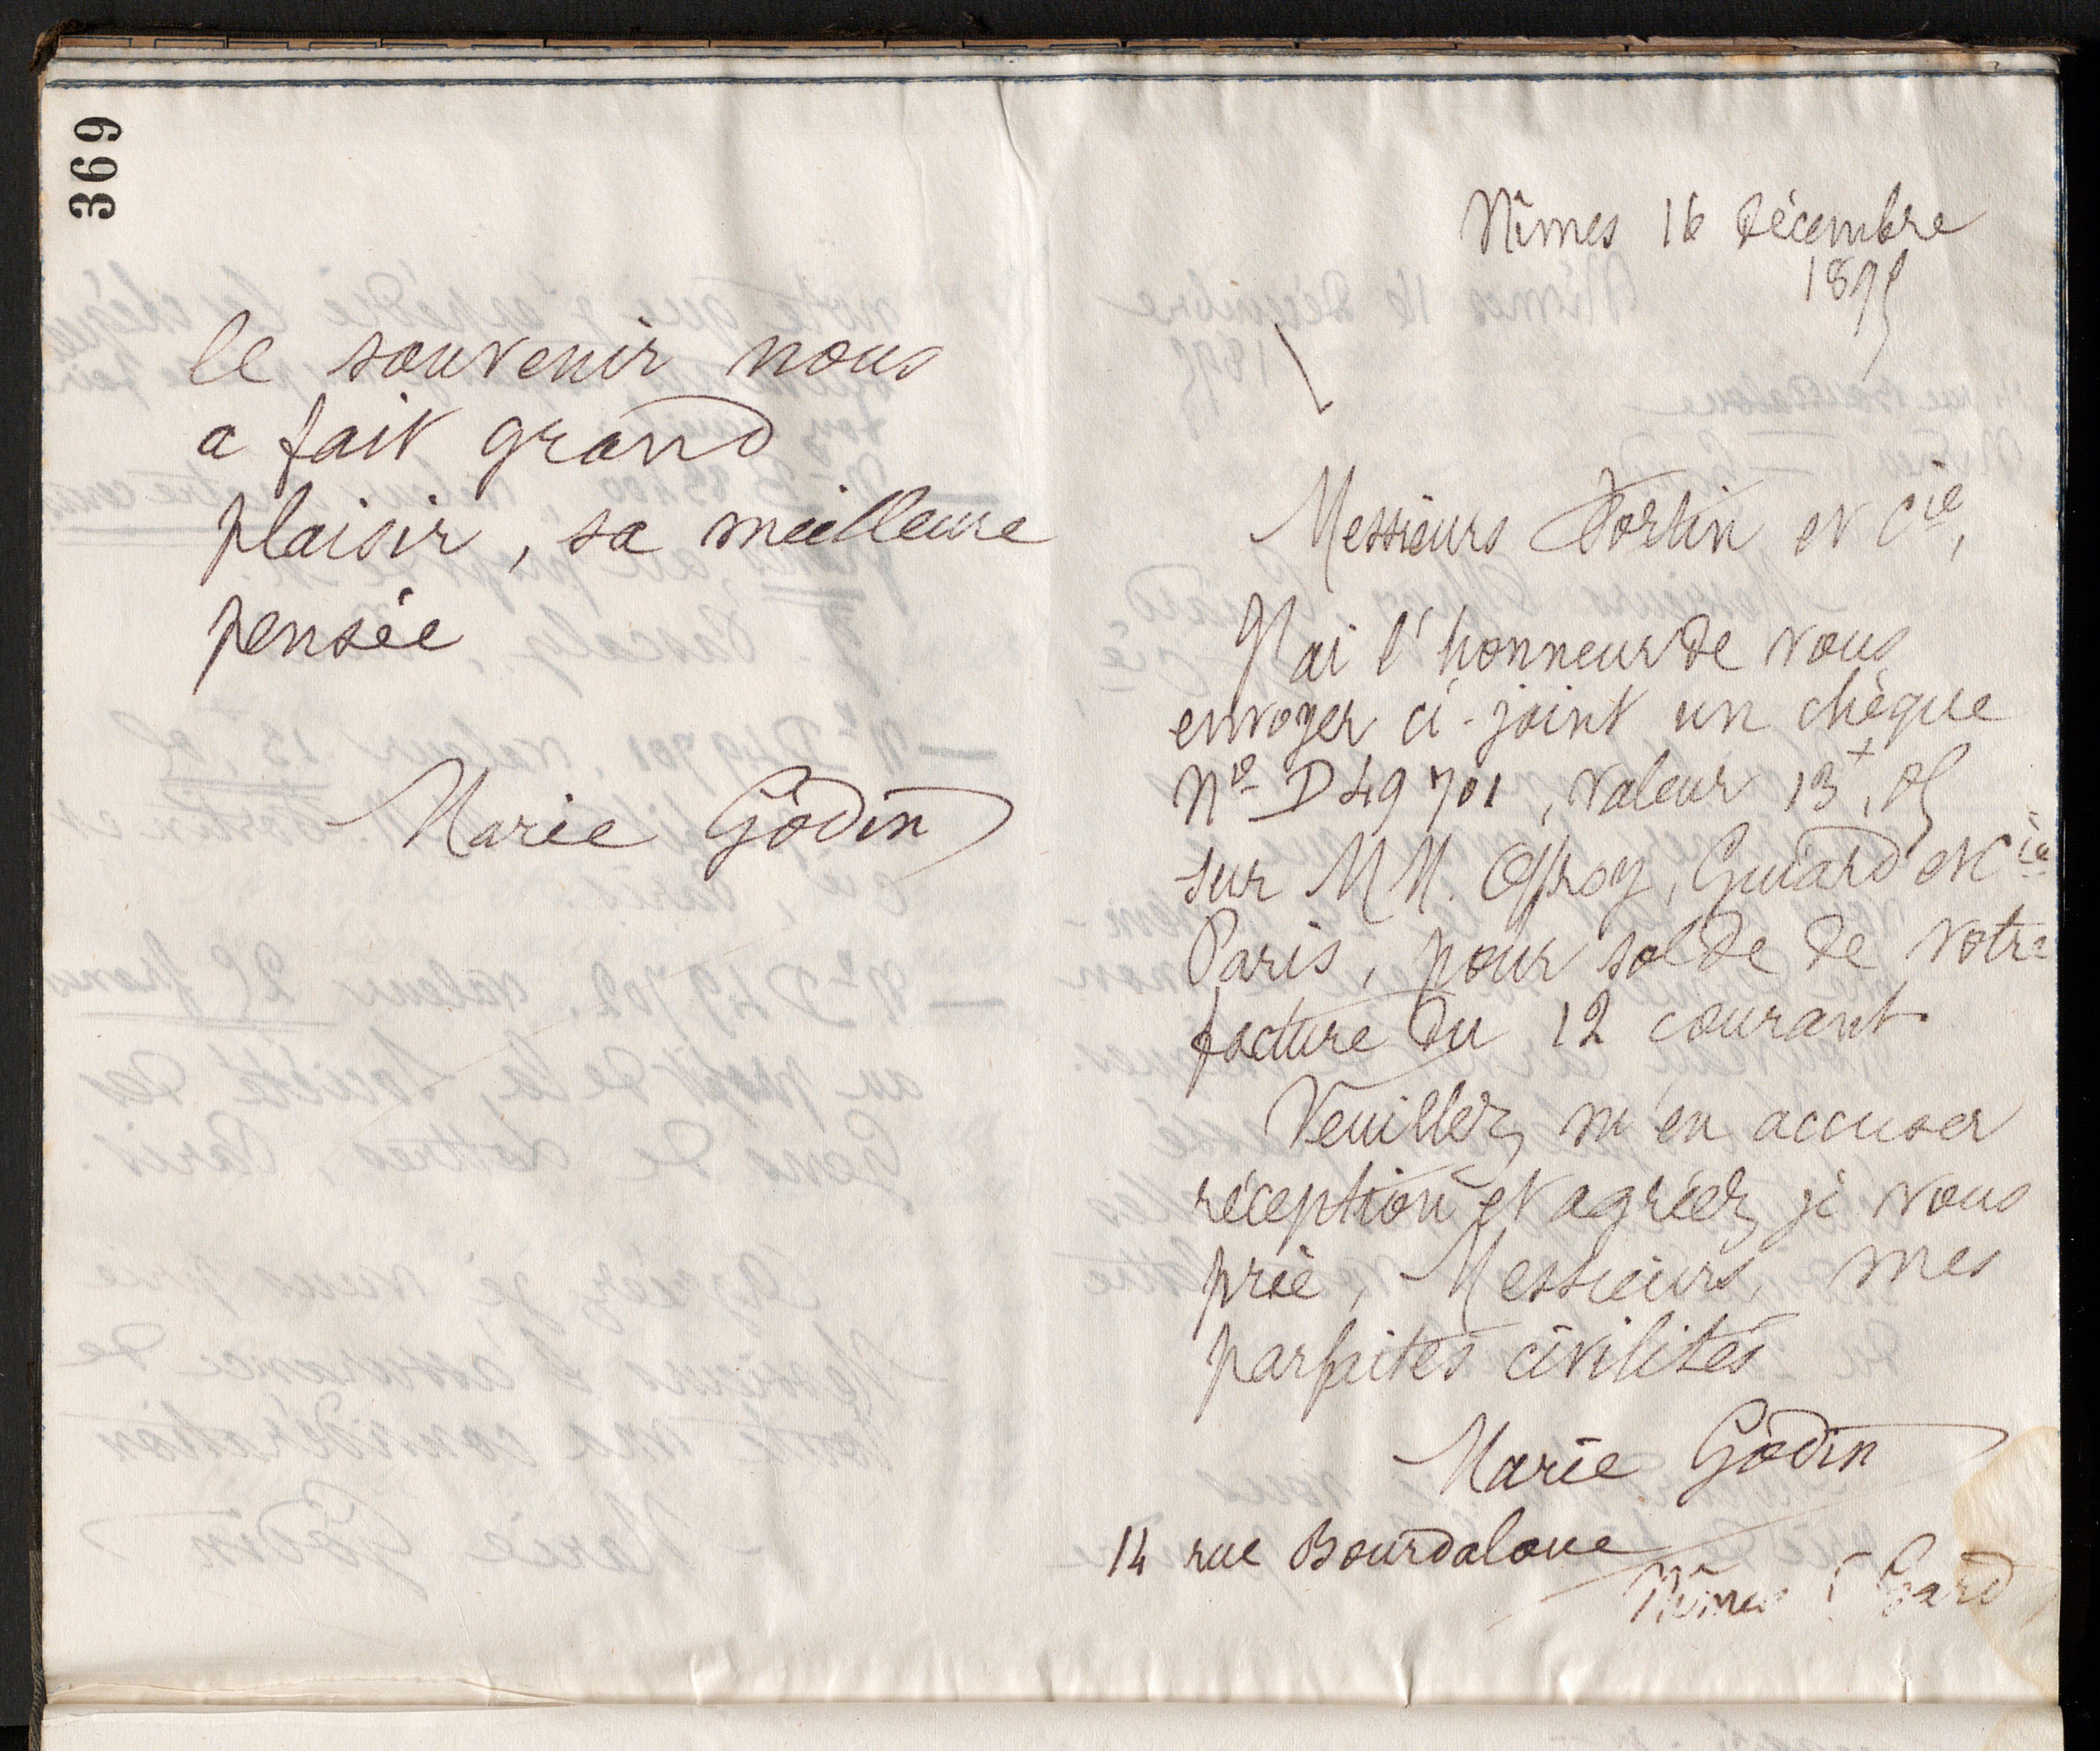 369
le souvenir nous
a fait grand
plaisir, sa meilleure
pensée
Marie Godin
Nîmes 16 décembre
1895
Messieurs Fortin et Cie,
J'ai l'honneur de vous
envoyer ci-joint un chèque
No D 49701, valeur 13f,05
sur MM. Offroy, Guiard et Cie
Paris, pour solde de votre
facture du 12 courant
Veuillez m'en accuser
réception et agréez je vous
prie, Messieurs, mes
parfaites civilités
Marie Godin
14 rue Bourdaloue
Nîmes (Gard)